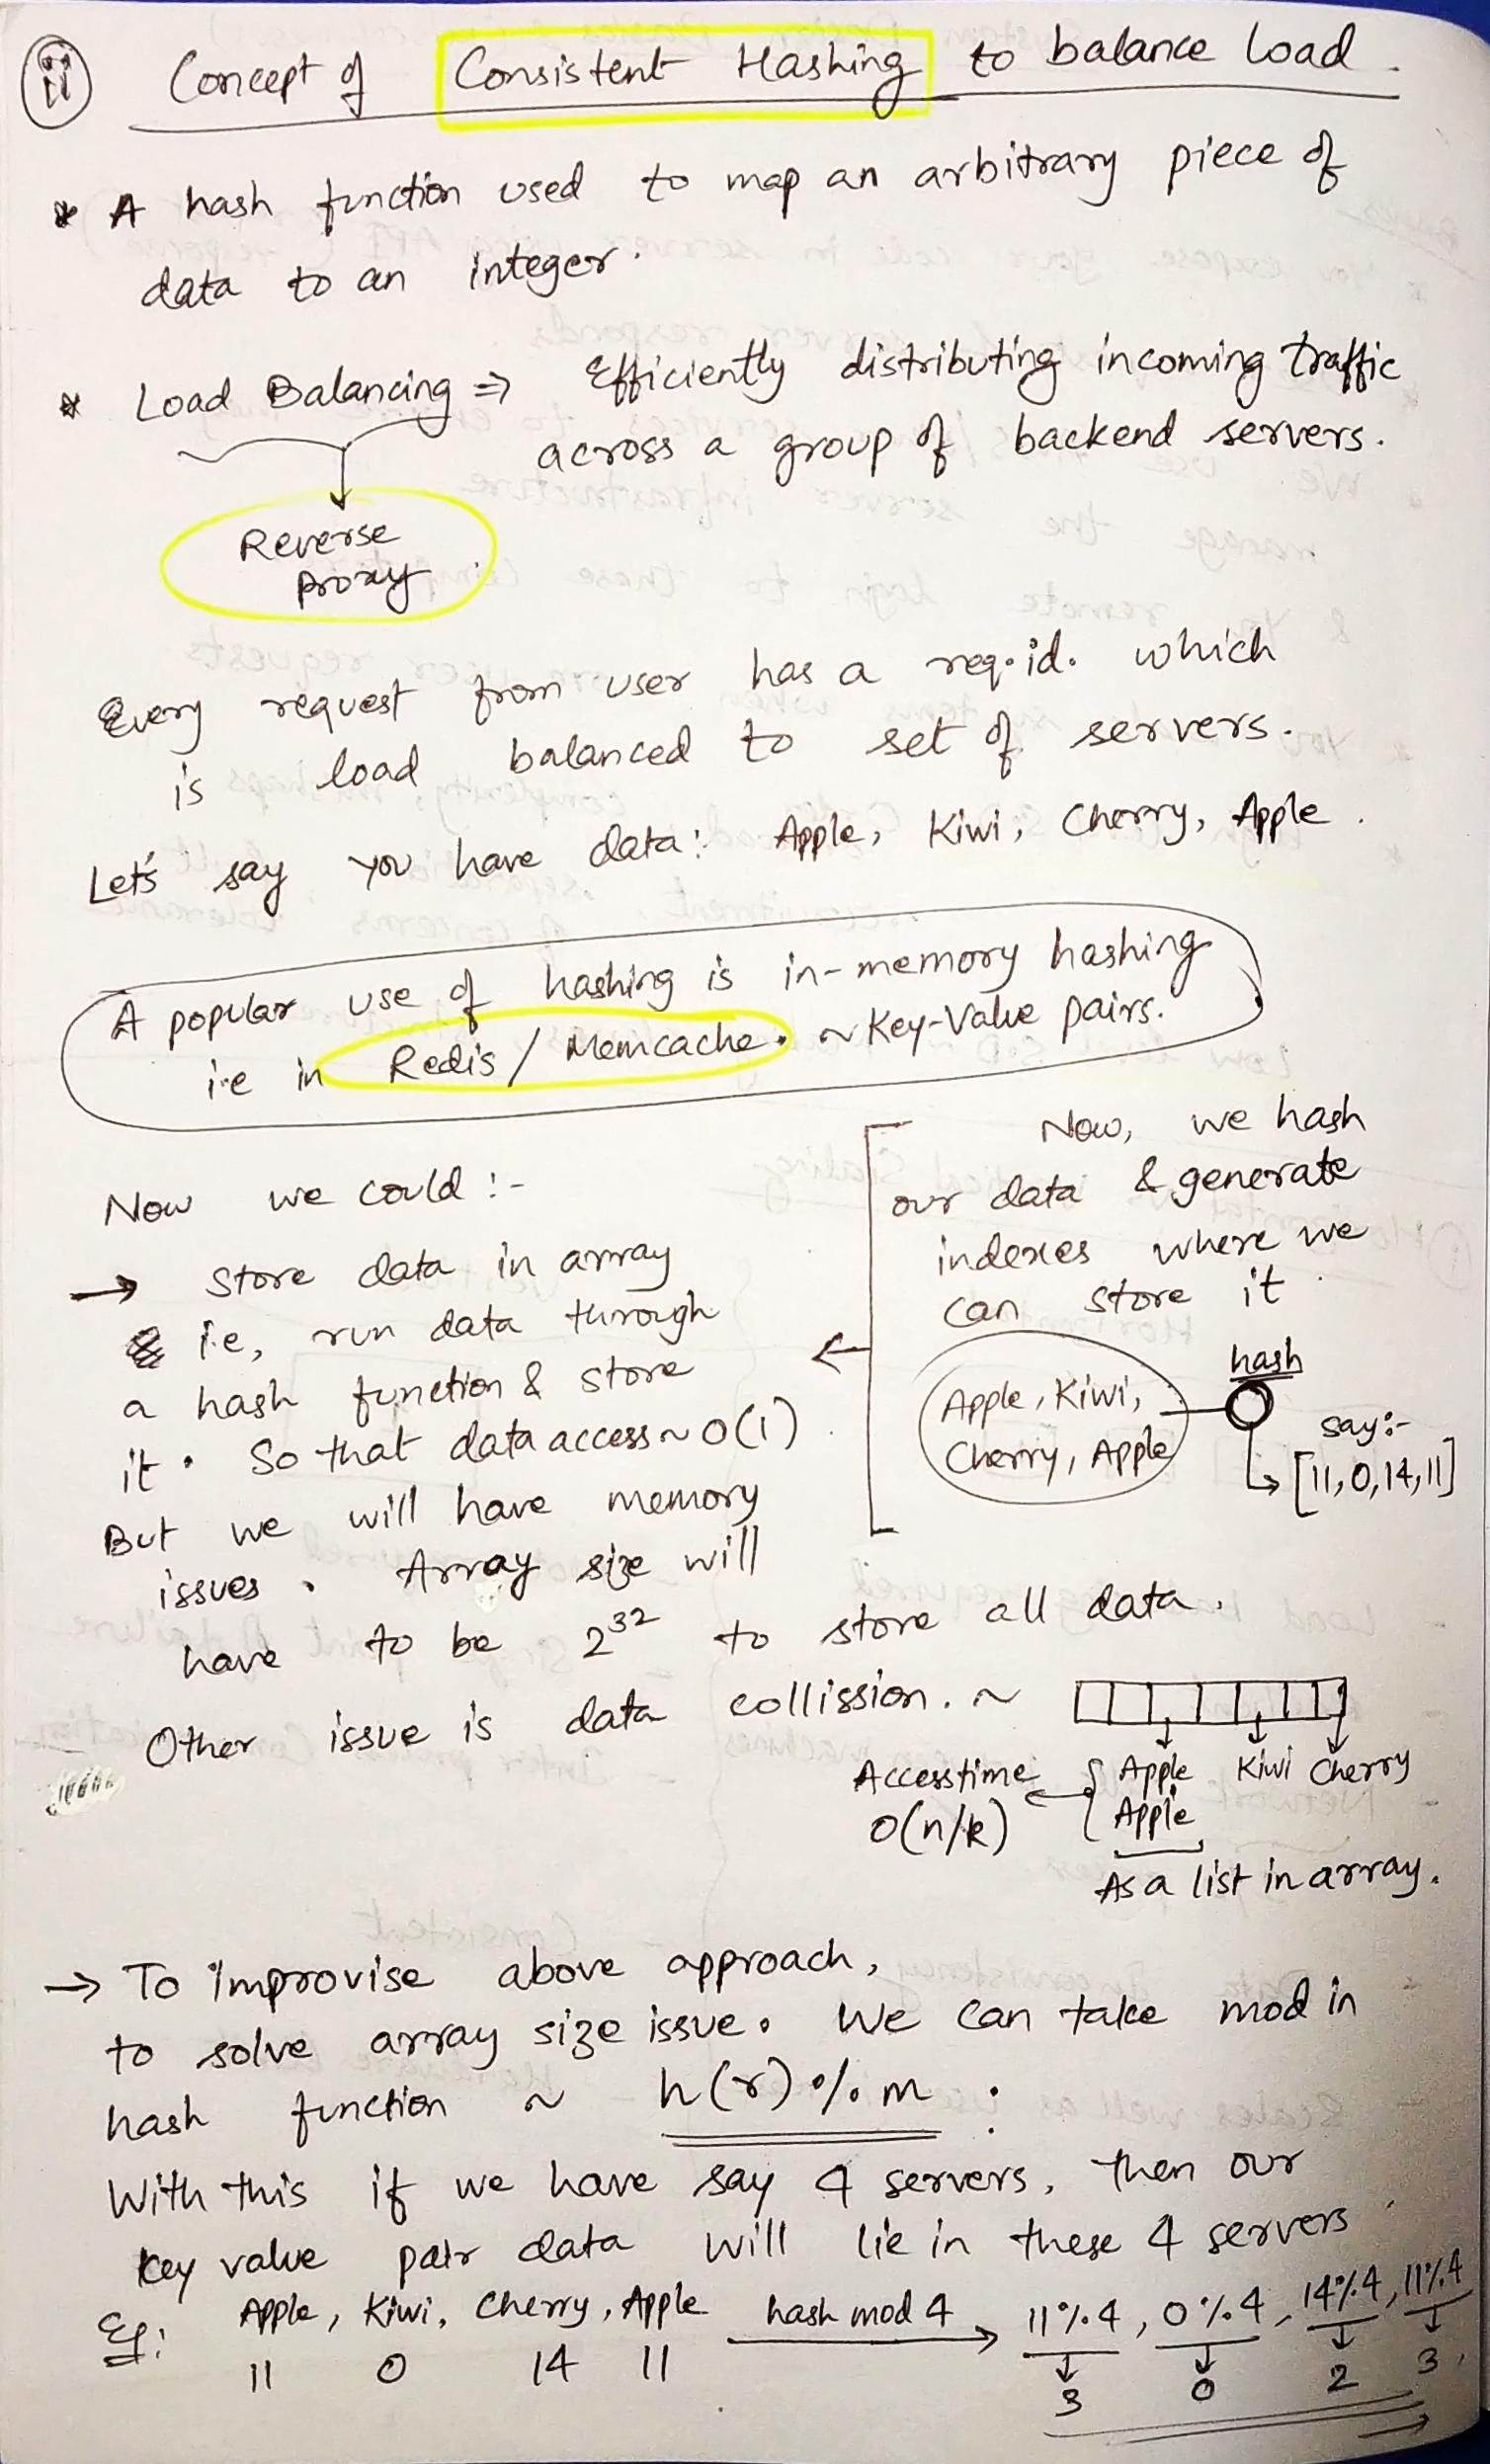 Concept of Consistent Hashing to balance load.
* A hash function used to map an arbitrary piece of
data to an integer.
* Load Balancing ⇒ Efficiently distributing incoming traffic
across a group of backend servers.
Reverse
Proxy
Every request from user has a req.id. which
is load balanced to set of servers.
Let's say you have data: Apple, Kiwi, Cherry, Apple.
A popular use of hashing is in-memory hashing
i.e in Redis / Memcache. ~ Key-Value pairs.
Now we could :-
→ Store data in array
i.e, run data through
a hash function & store
it. So that data access ~ O(1)
But we will have memory
issues. Array size will
have to be 2^32 to store all data.
Now, we hash
our data & generate
indexes where we
can store it.
Apple, Kiwi,
Cherry, Apple
hash
say:-
[11,0,14,11]
Other issue is data collission. ~
Apple Kiwi Cherry
Apple
Access time
O(n/k)
As a list in array.
→ To improvise above approach,
to solve array size issue. We can take mod in
hash function ~ h(r) % m.
With this if we have say 4 servers, then our
key value pair data will lie in these 4 servers
Eg: Apple, Kiwi, Cherry, Apple hash mod 4 → 11%4, 0%4, 14%4, 11%4
11 0 14 11 3 0 2 3